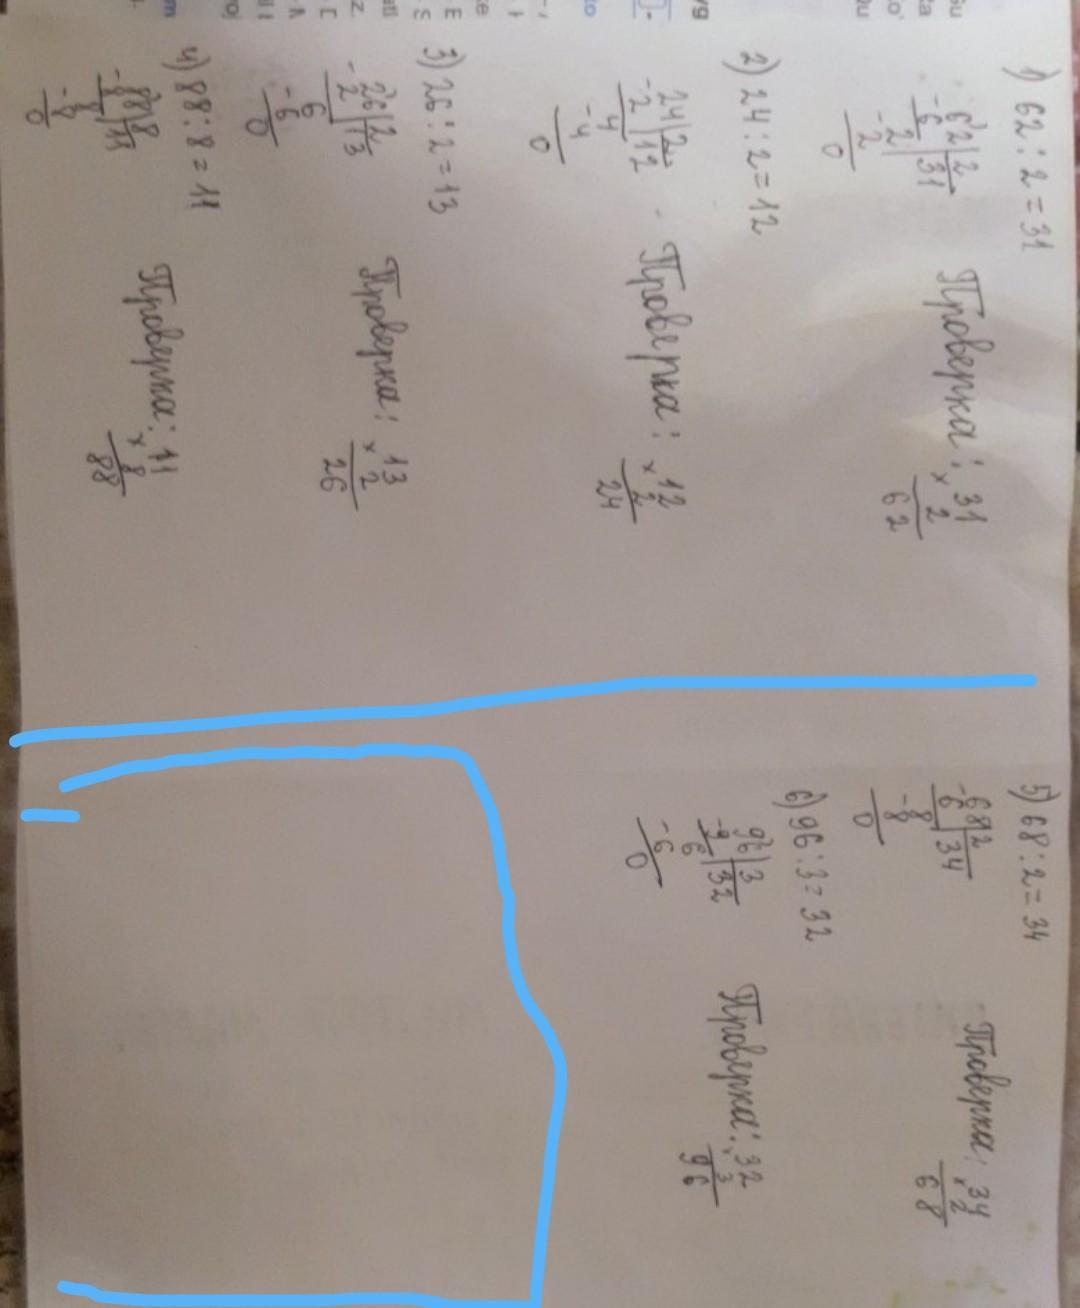 1) 62 : 2 = 31
-62|2
6 |31
2
-2
0
Проверка: 31
×2
62
2) 24 : 2 = 12
24|2
-2 |12
4
-4
0
Проверка: 12
×2
24
3) 26 : 2 = 13
26|2
-2 |13
6
-6
0
Проверка: 13
×2
26
4) 88 : 8 = 11
88|8
-8 |11
8
-8
0
Проверка: 11
×8
88
5) 68 : 2 = 34
-68|2
6 |34
8
-8
0
Проверка: 34
×2
68
6) 96 : 3 = 32
96|3
-9 |32
6
-6
0
Проверка: 32
×3
96